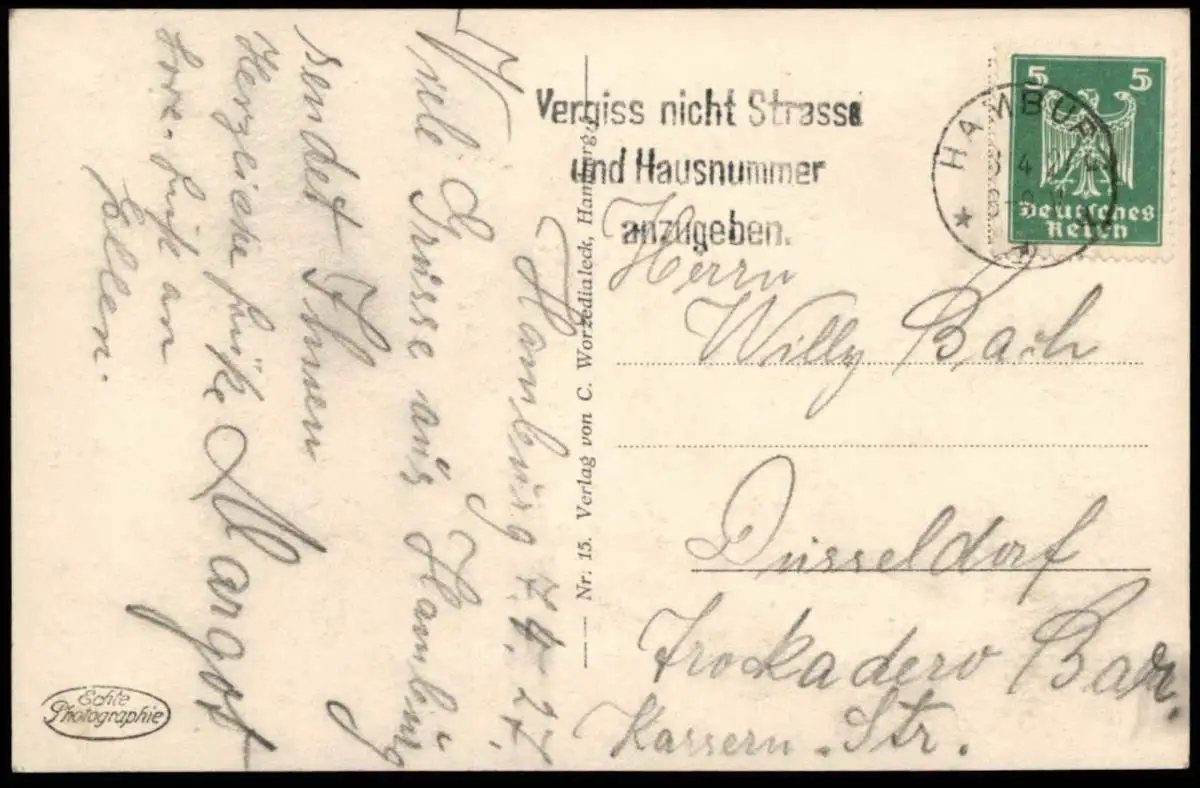 Hamburg 7.4.27.
Viele Grüsse aus Hamburg
sendet Ihnen
Herzliche Küsse Margot
an
Ellen.
Echte
Photographie
Nr. 15. Verlag von C. Worzedialeck, Hamburg
Vergiss nicht Strasse
und Hausnummer
anzugeben.
HAMBURG
5 5
Deutsches
Reich
Herrn
Willy Bach
Düsseldorf
Trockadero Bar.
Kasern. Str.